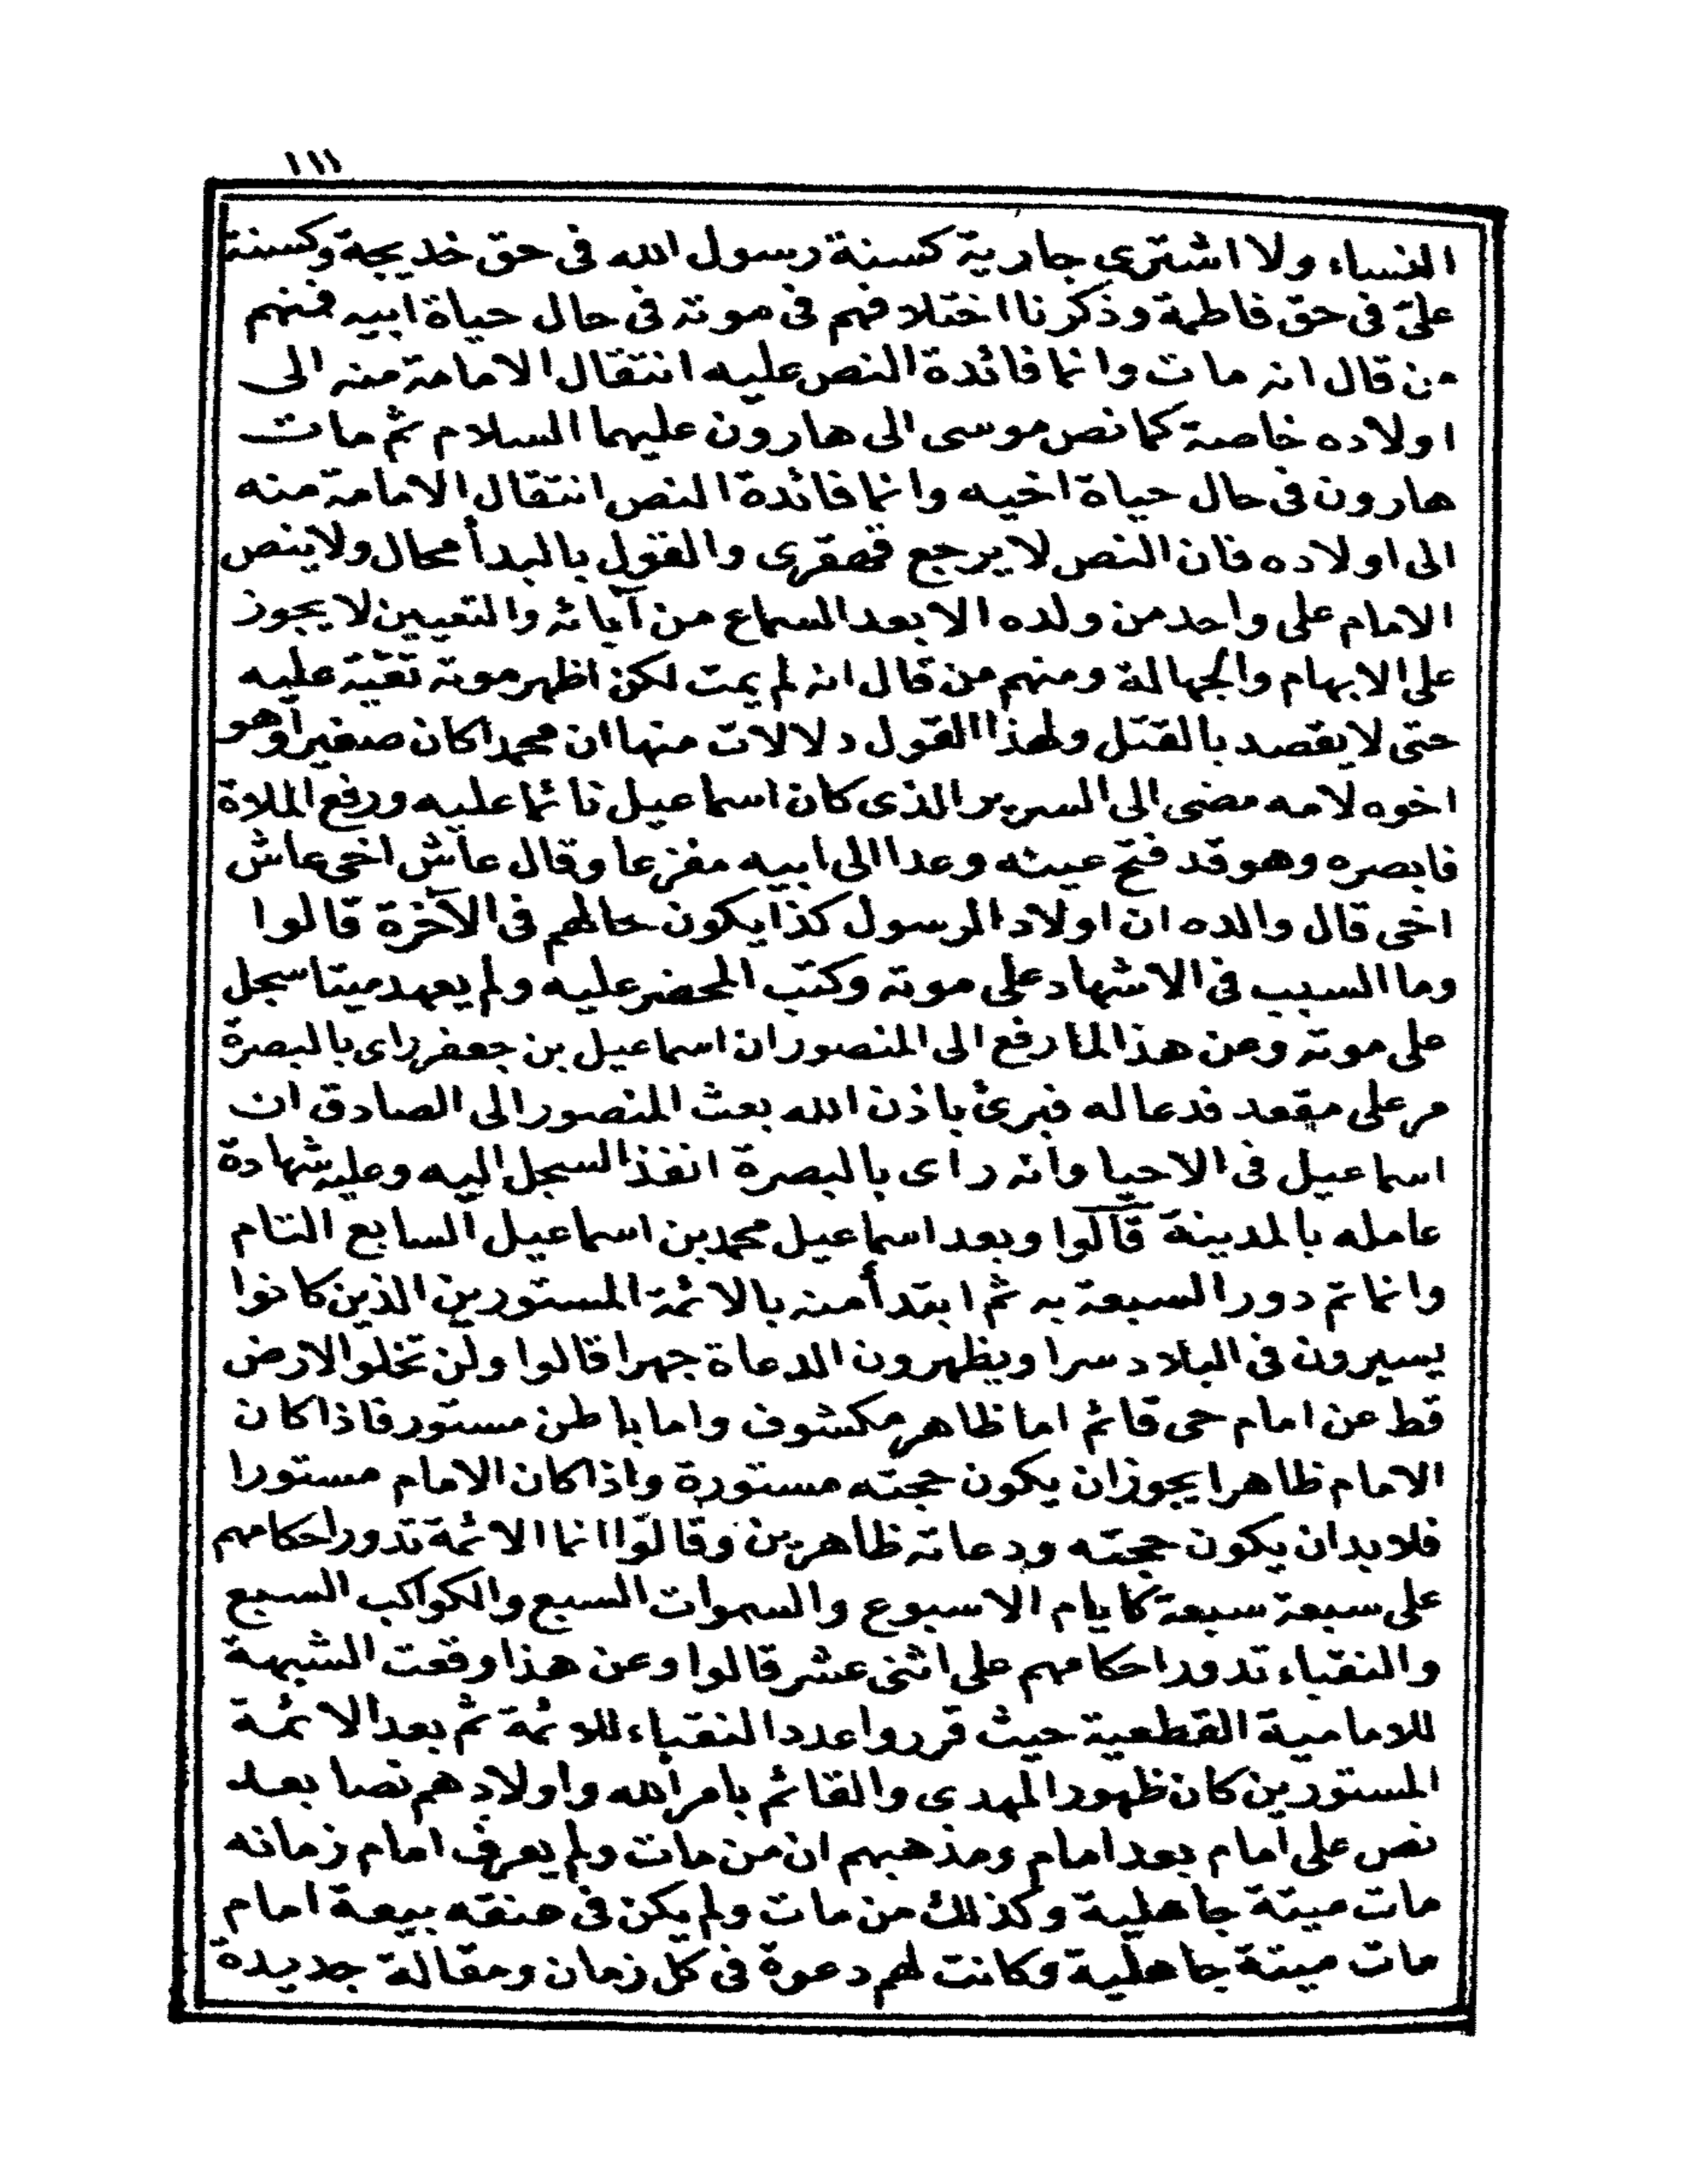 ١١١
النساء ولا اشترى جارية كسنة رسول الله فى حق خديجة وكسنة
علىّ فى حق فاطمة وذكرنا اختلافهم فى موته فى حال حياة ابيه فمنهم
من قال انه مات وانما فائدة النص عليه انتقال الامامة منه الى
اولاده خاصة كما نص موسى الى هارون عليهما السلام ثم مات
هارون فى حال حياة اخيه وانما فائدة النص انتقال الامامة منه
الى اولاده فان النص لا يرجع قهقرى والقول بالبدأ محال ولا ينص
الامام على واحد من ولده الا بعد السماع من آبائه والتعيين لا يجوز
على الابهام والجهالة ومنهم من قال انه لم يمت لكن اظهر موته تقية عليه
حتى لا يقصد بالقتل ولهذا القول دلالات منها ان محمدا كان صغيرا وهو
اخوه لامه مضى الى السرير الذى كان اسماعيل نائما عليه ورفع الملاة
فابصره وهو قد فتح عينه وعدا الى ابيه مفزعا وقال عاش اخى عاش
اخى قال والده ان اولاد الرسول كذا يكون حالهم فى الآخرة قالوا
وما السبب فى الاشهاد على موته وكتب المحضر عليه ولم يعهد ميتا سجل
على موته وعن هذا لما رفع الى المنصور ان اسماعيل بن جعفر راى بالبصرة
مر على مقعد فدعا له فبرئ باذن الله بعث المنصور الى الصادق ان
اسماعيل فى الاحيا وانه راى بالبصرة انفذ السجل اليه وعليه شهادة
عامله بالمدينة قالوا وبعد اسماعيل محمد بن اسماعيل السابع التام
وانما تم دور السبعة به ثم ابتدأ منه بالائمة المستورين الذين كانوا
يسيرون فى البلاد سرا ويظهرون الدعاة جهرا قالوا ولن تخلو الارض
قط عن امام حى قائم اما ظاهر مكشوف واما باطن مستور فاذا كان
الامام ظاهرا يجوز ان يكون حجته مستورة واذا كان الامام مستورا
فلا بد ان يكون حجته ودعاته ظاهرين وقالوا انما الائمة تدور احكامهم
على سبعة سبعة كايام الاسبوع والسموات السبع والكواكب السبع
والنقباء تدور احكامهم على اثنى عشر قالوا وعن هذا وقعت الشبهة
للامامية القطعية حيث قرروا عدد النقباء للائمة ثم بعد الائمة
المستورين كان ظهور المهدى والقائم بامر الله واولادهم نصا بعد
نص على امام بعد امام ومذهبهم ان من مات ولم يعرف امام زمانه
مات ميتة جاهلية وكذلك من مات ولم يكن فى عنقه بيعة امام
مات ميتة جاهلية وكانت لهم دعوة فى كل زمان ومقالة جديدة